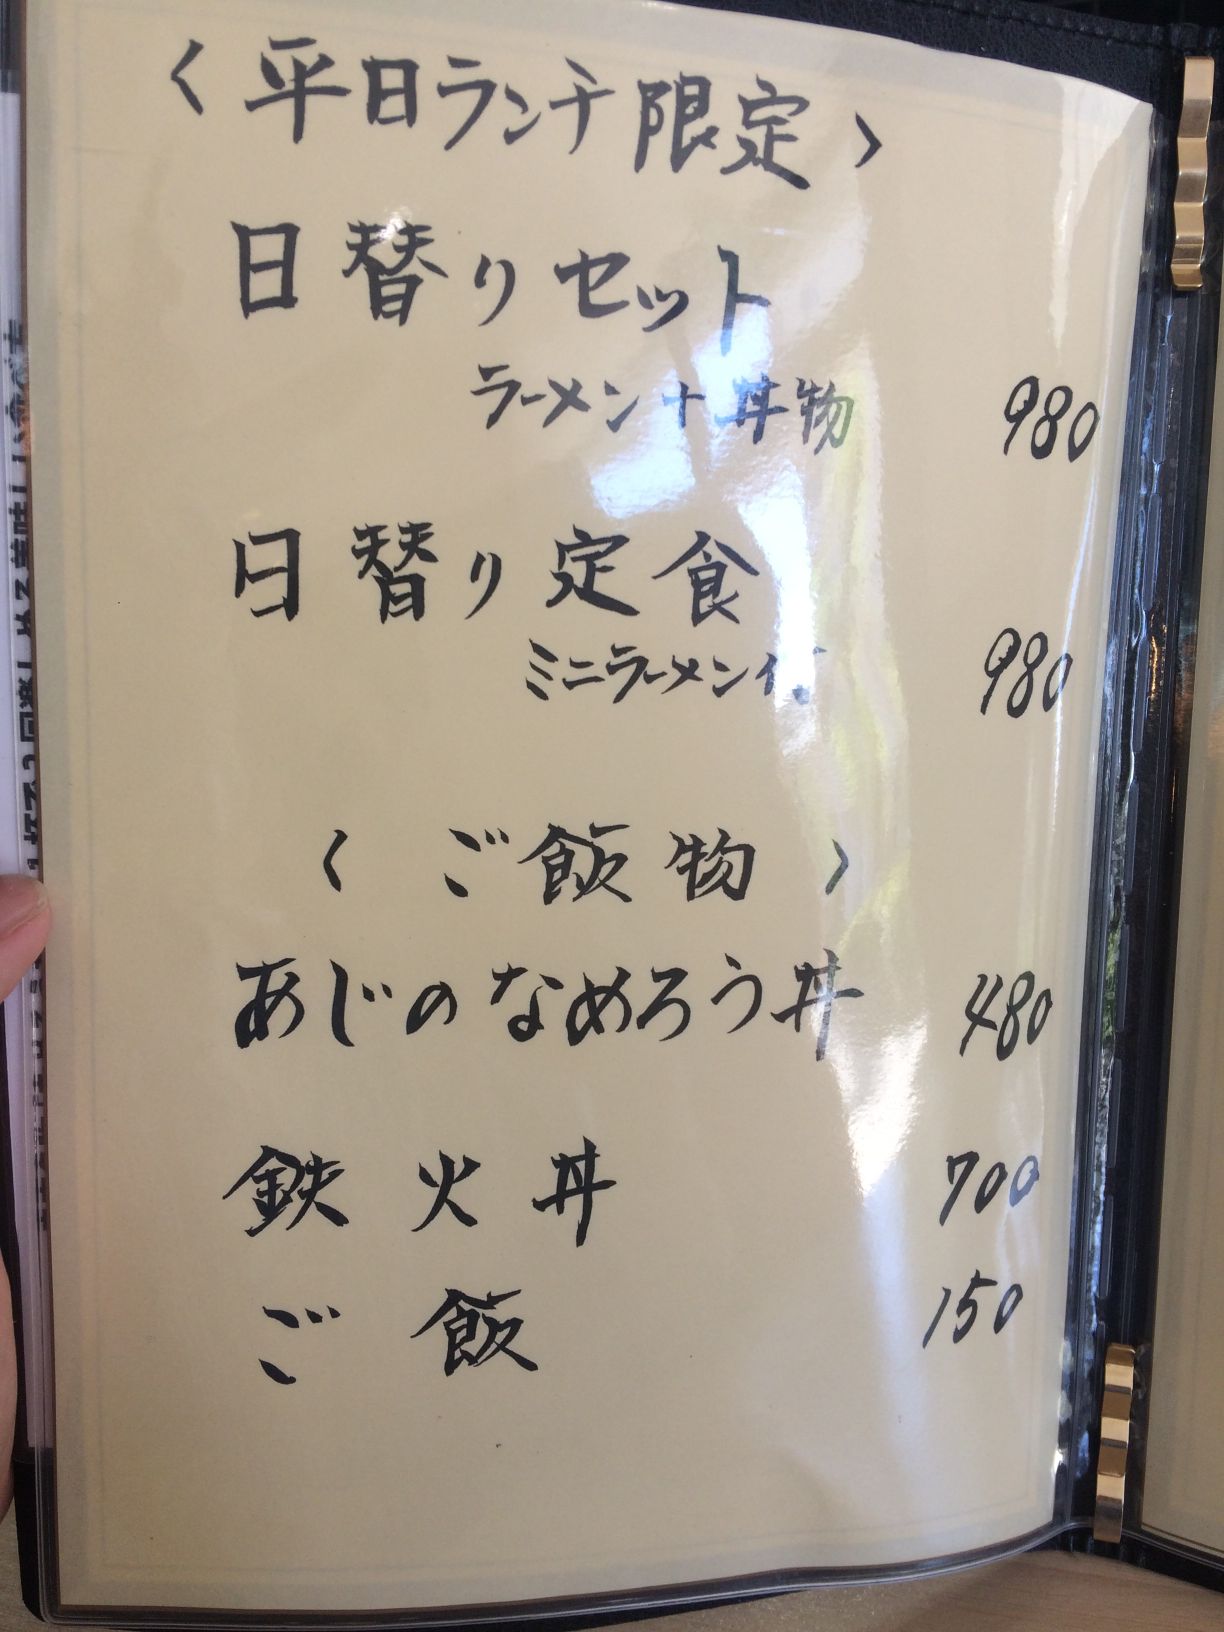 〈平日ランチ限定〉
日替りセット
ラーメン+丼物 980
日替り定食
ミニラーメン付 980
〈ご飯物〉
あじのなめろう丼 480
鉄火丼 700
ご飯 150